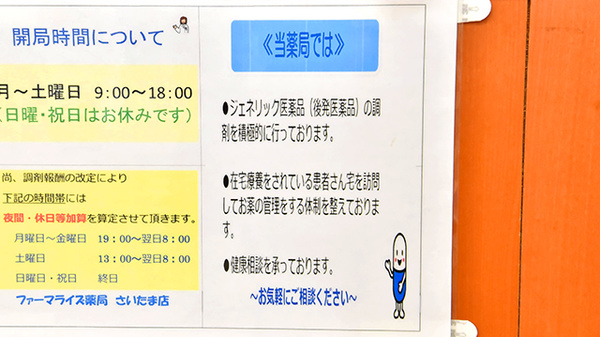 開局時間について
月～土曜日 9:00～18:00
（日曜・祝日はお休みです）
尚、調剤報酬の改定により
下記の時間帯には
夜間・休日等加算を算定させて頂きます。
月曜日～金曜日 19：00～翌日8：00
土曜日 13：00～翌日8：00
日曜日・祝日 終日
ファーマライズ薬局 さいたま店
《当薬局では》
●ジェネリック医薬品（後発医薬品）の調
剤を積極的に行っております。
●在宅療養をされている患者さん宅を訪問
してお薬の管理をする体制を整えておりま
す。
●健康相談を承っております。
～お気軽にご相談ください～